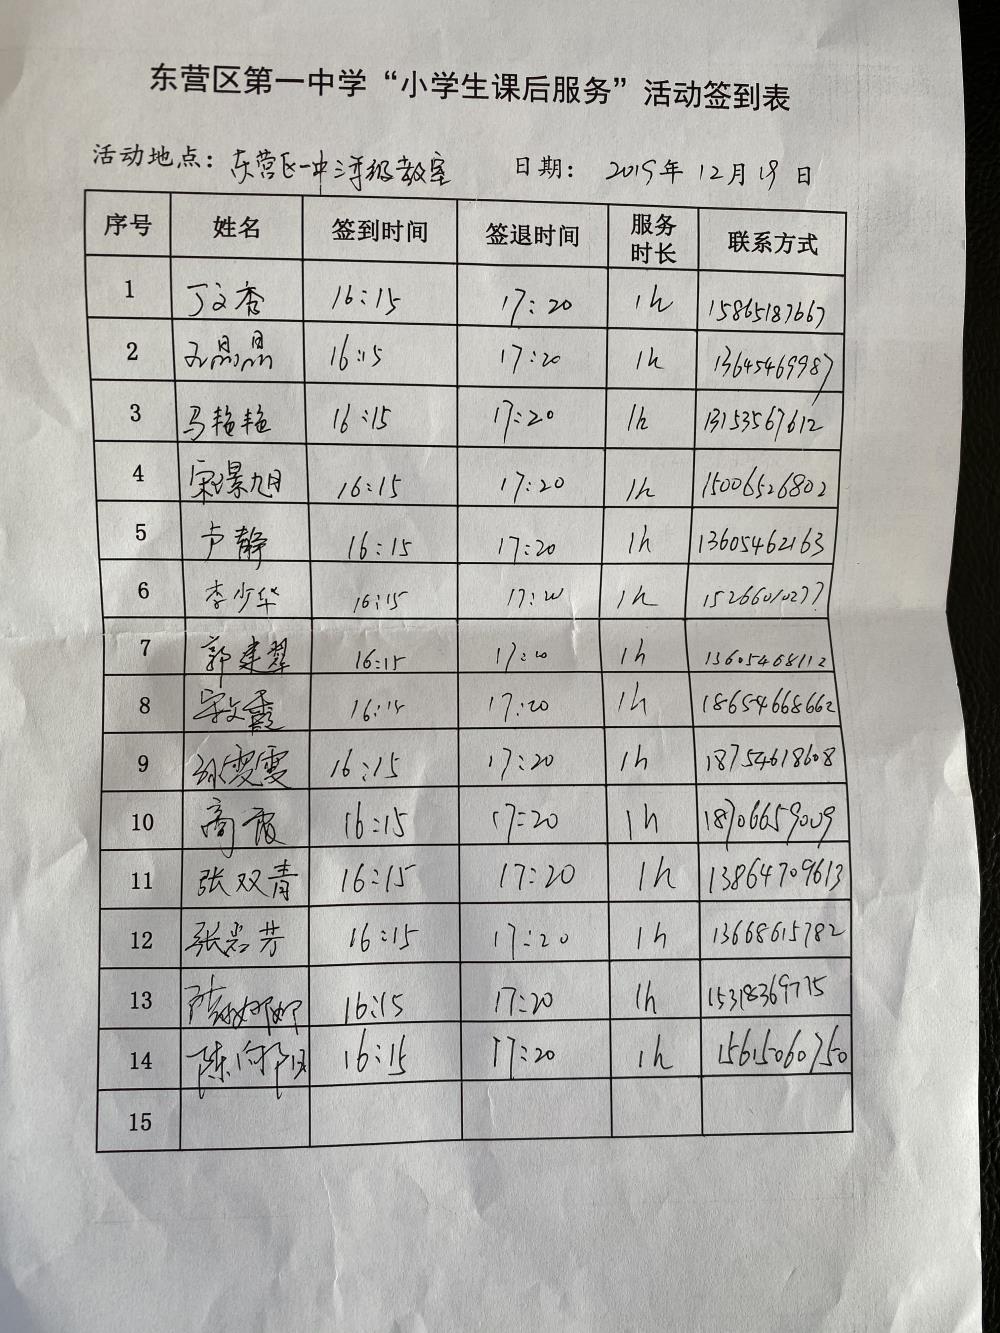 东营区第一中学“小学生课后服务”活动签到表
活动地点：东营区一中三年级教室 日期：2019年12月19日
序号 姓名 签到时间 签退时间 服务时长 联系方式
1 丁文香 16:15 17:20 1h 15865187667
2 孔晶晶 16:15 17:20 1h 13645469987
3 马艳艳 16:15 17:20 1h 13153567612
4 宋景旭 16:15 17:20 1h 15006526802
5 卢静 16:15 17:20 1h 13605462163
6 李少华 16:15 17:20 1h 15266010277
7 郭建翠 16:15 17:20 1h 13605468112
8 宋文霞 16:15 17:20 1h 18654668662
9 16:15 17:20 1h 18754618608
10 商霞 16:15 17:20 1h 18706659009
11 张双青 16:15 17:20 1h 13864709613
12 张岩芳 16:15 17:20 1h 13668615782
13 16:15 17:20 1h 15318369775
14 陈向阳 16:15 17:20 1h 15615060750
15